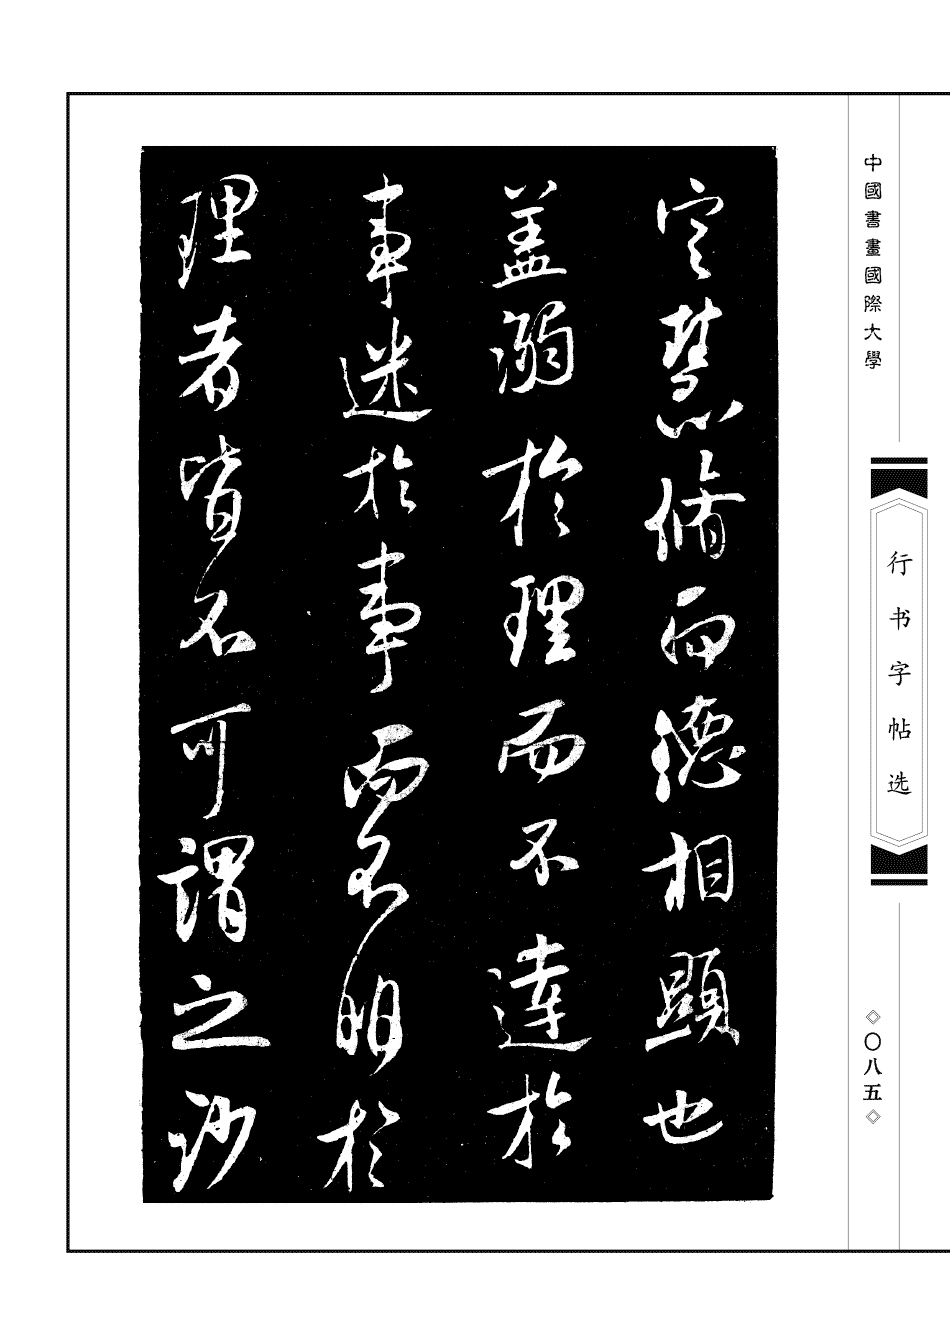 中國書畫國際大學
行书字帖选
〇八五
定慧脩而德相顯也
盖溺於理而不達於
事迷於事而不明於
理者皆不可謂之沙